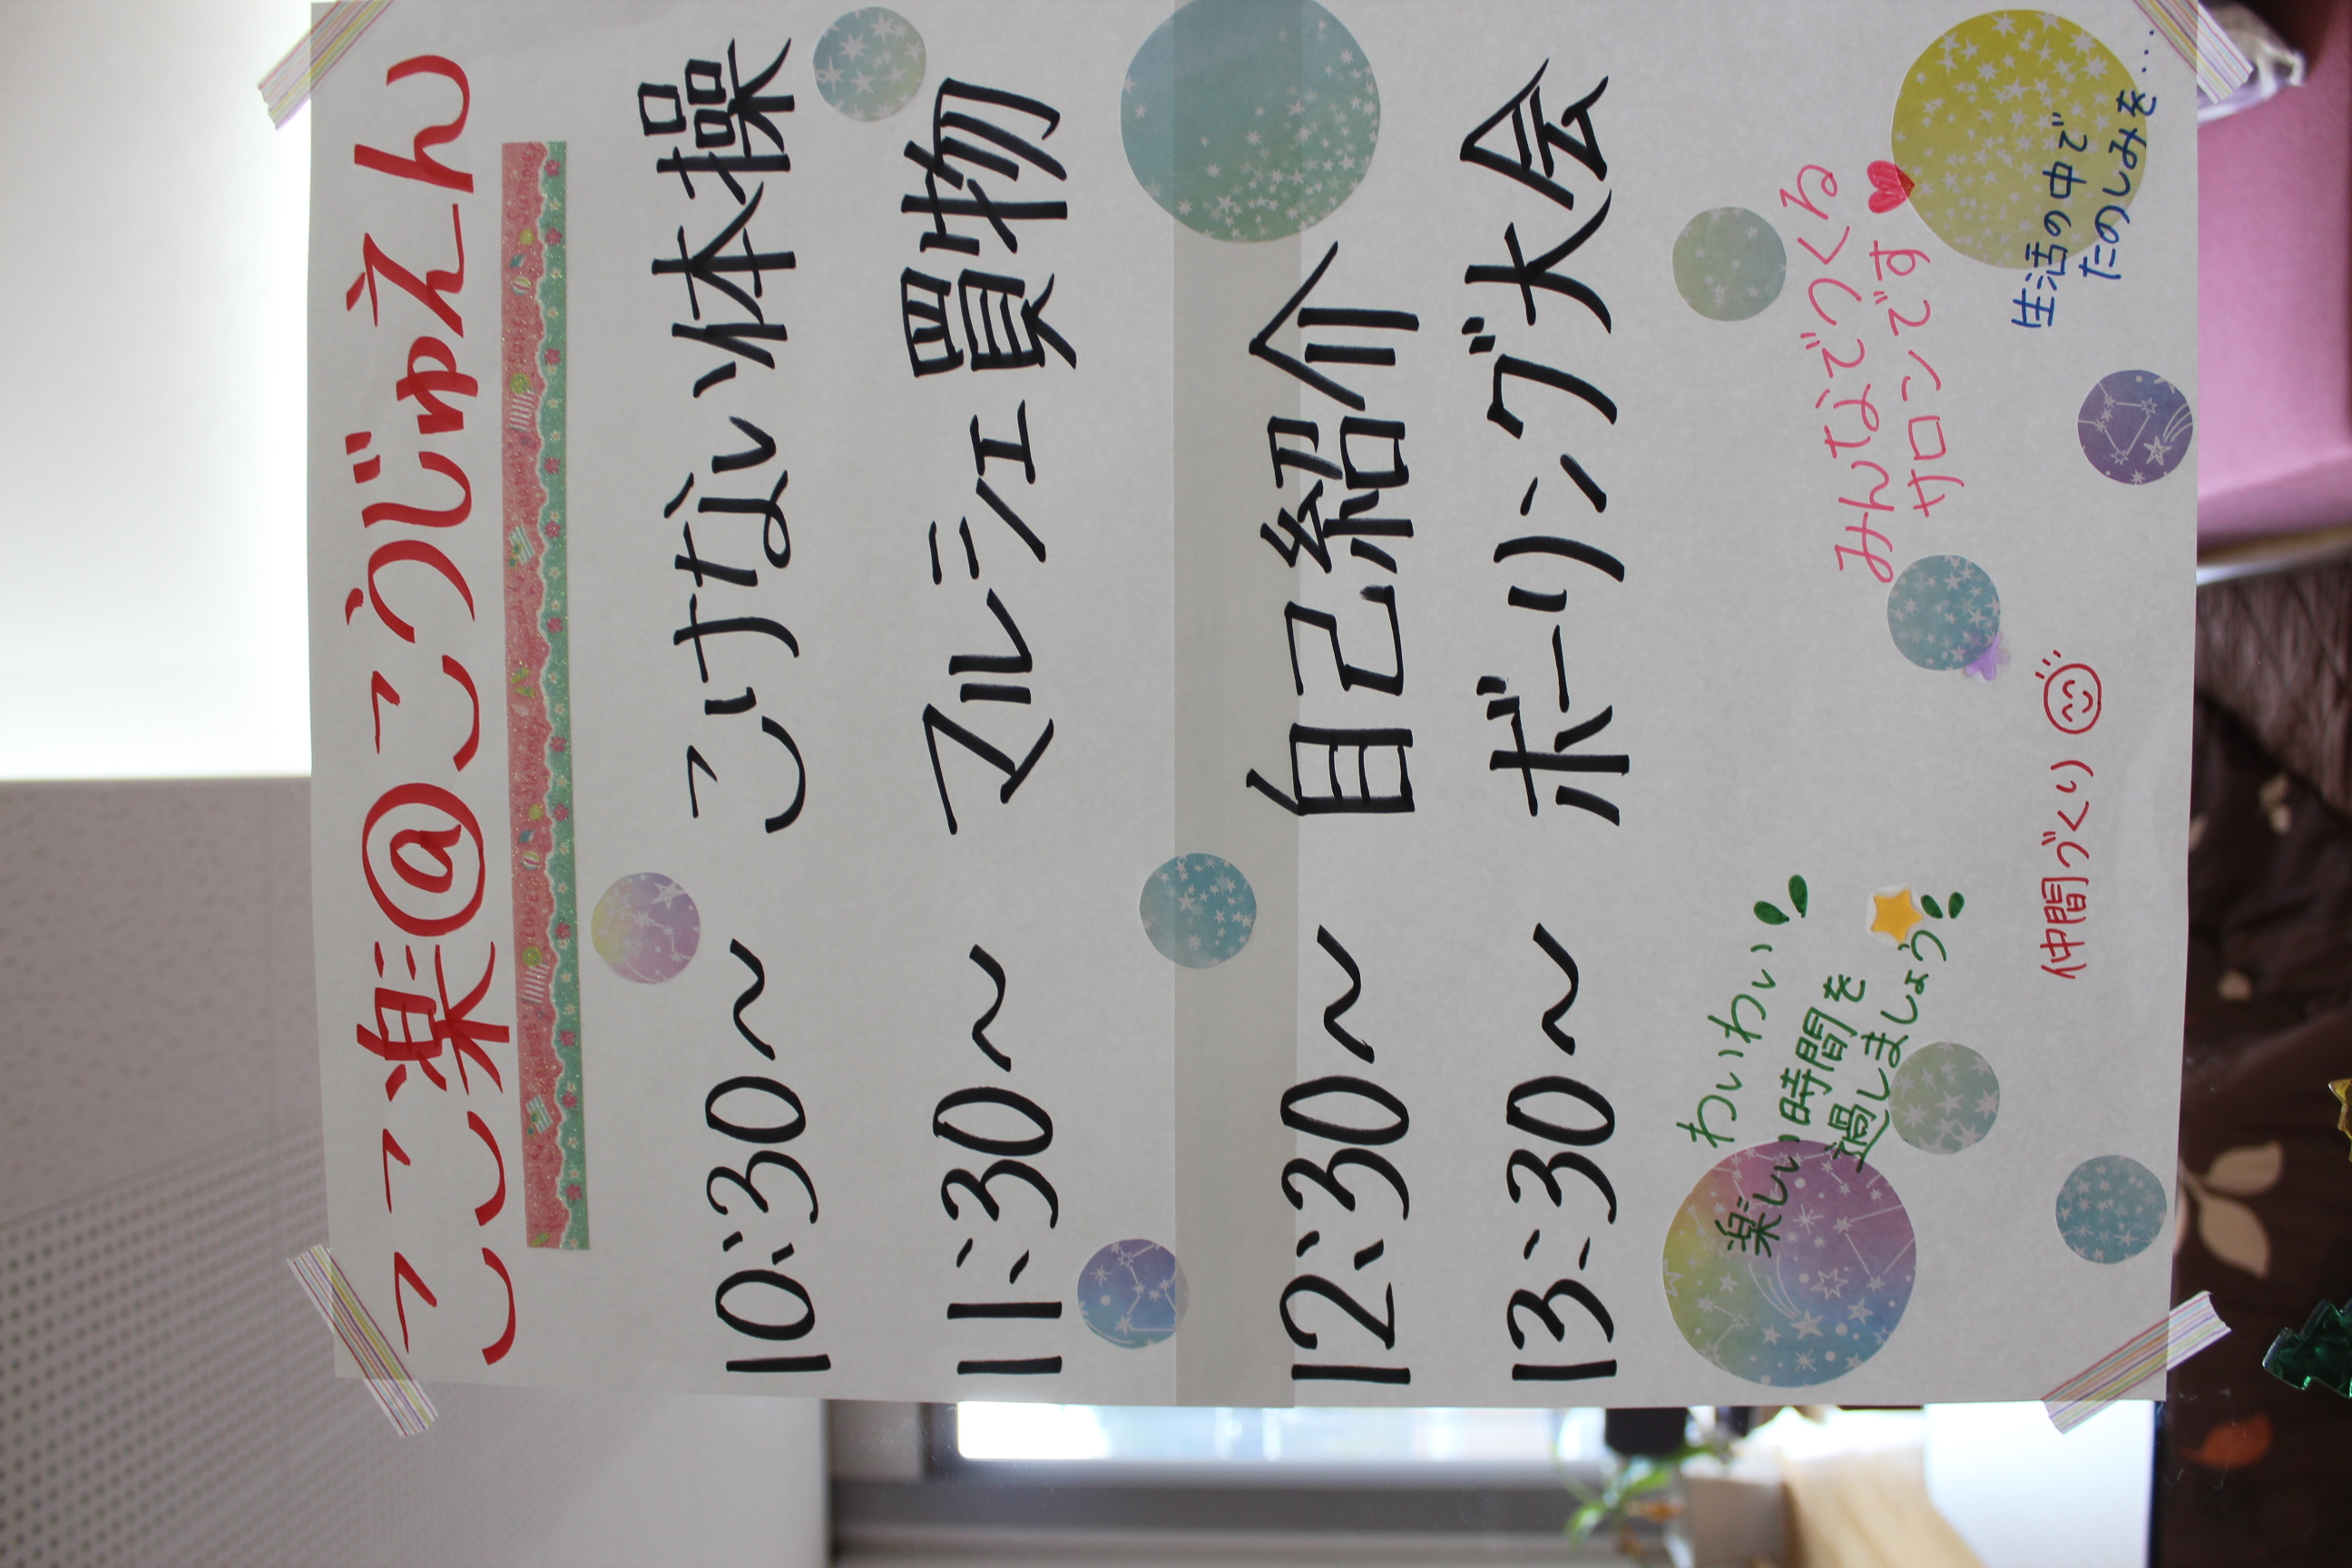 ここ楽@こうじゅえん
10:30〜 こけない体操
11:30〜 マルシェ買物
12:30〜 自己紹介
13:30〜 ボーリング大会
わいわい
楽しい時間を
過しましょう
みんなでつくる
サロンです
仲間づくり
生活の中で
たのしみを…